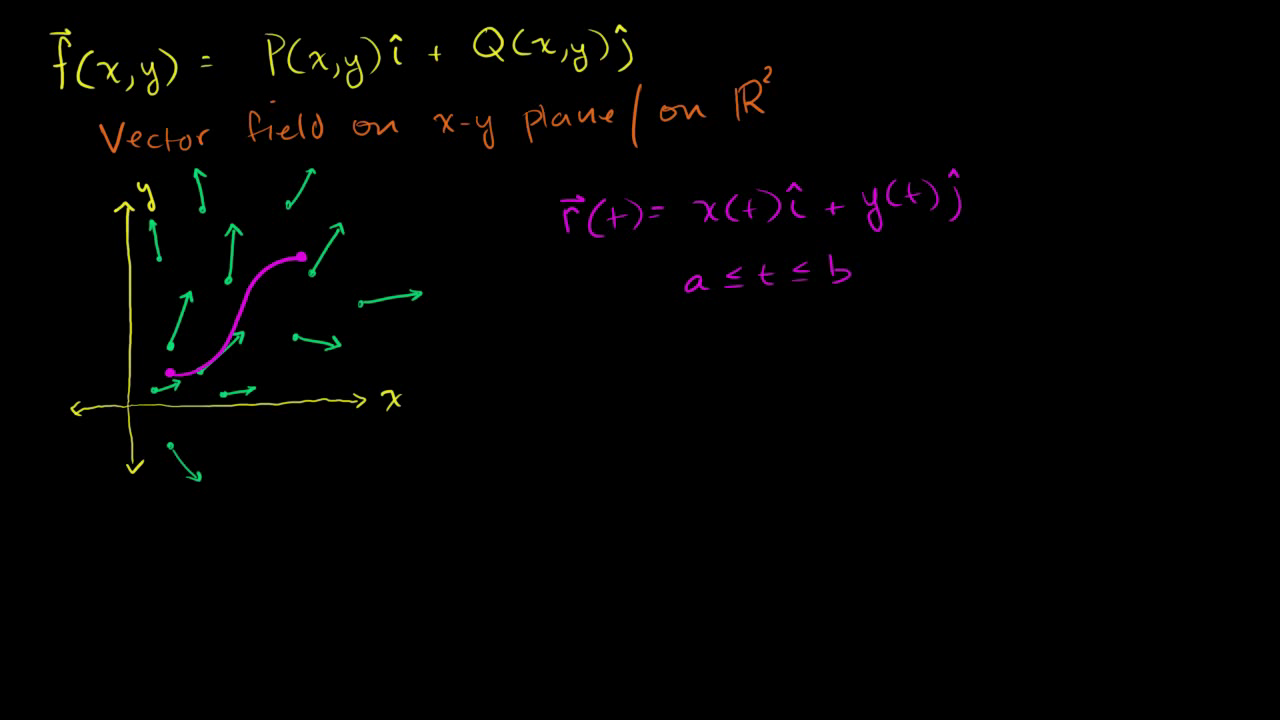 f⃗(x,y) = P(x,y)î + Q(x,y)ĵ
Vector field on x-y plane/on ℝ²
y
r⃗(t) = x(t)î + y(t)ĵ
a ≤ t ≤ b
x